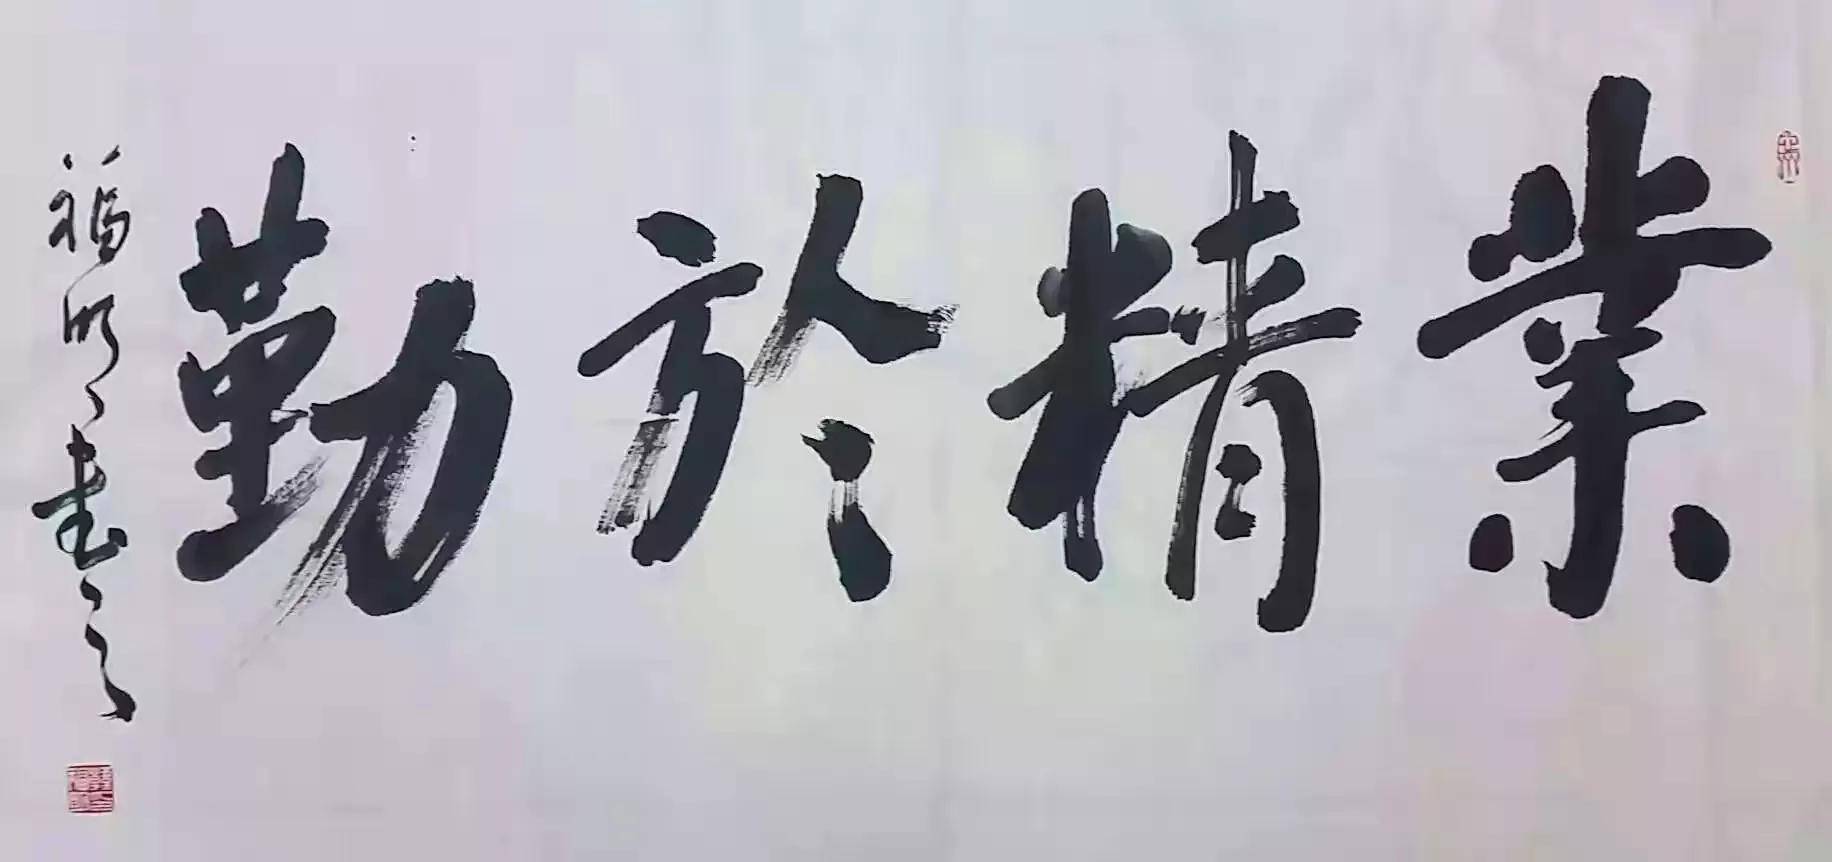 業精於勤
福明書之